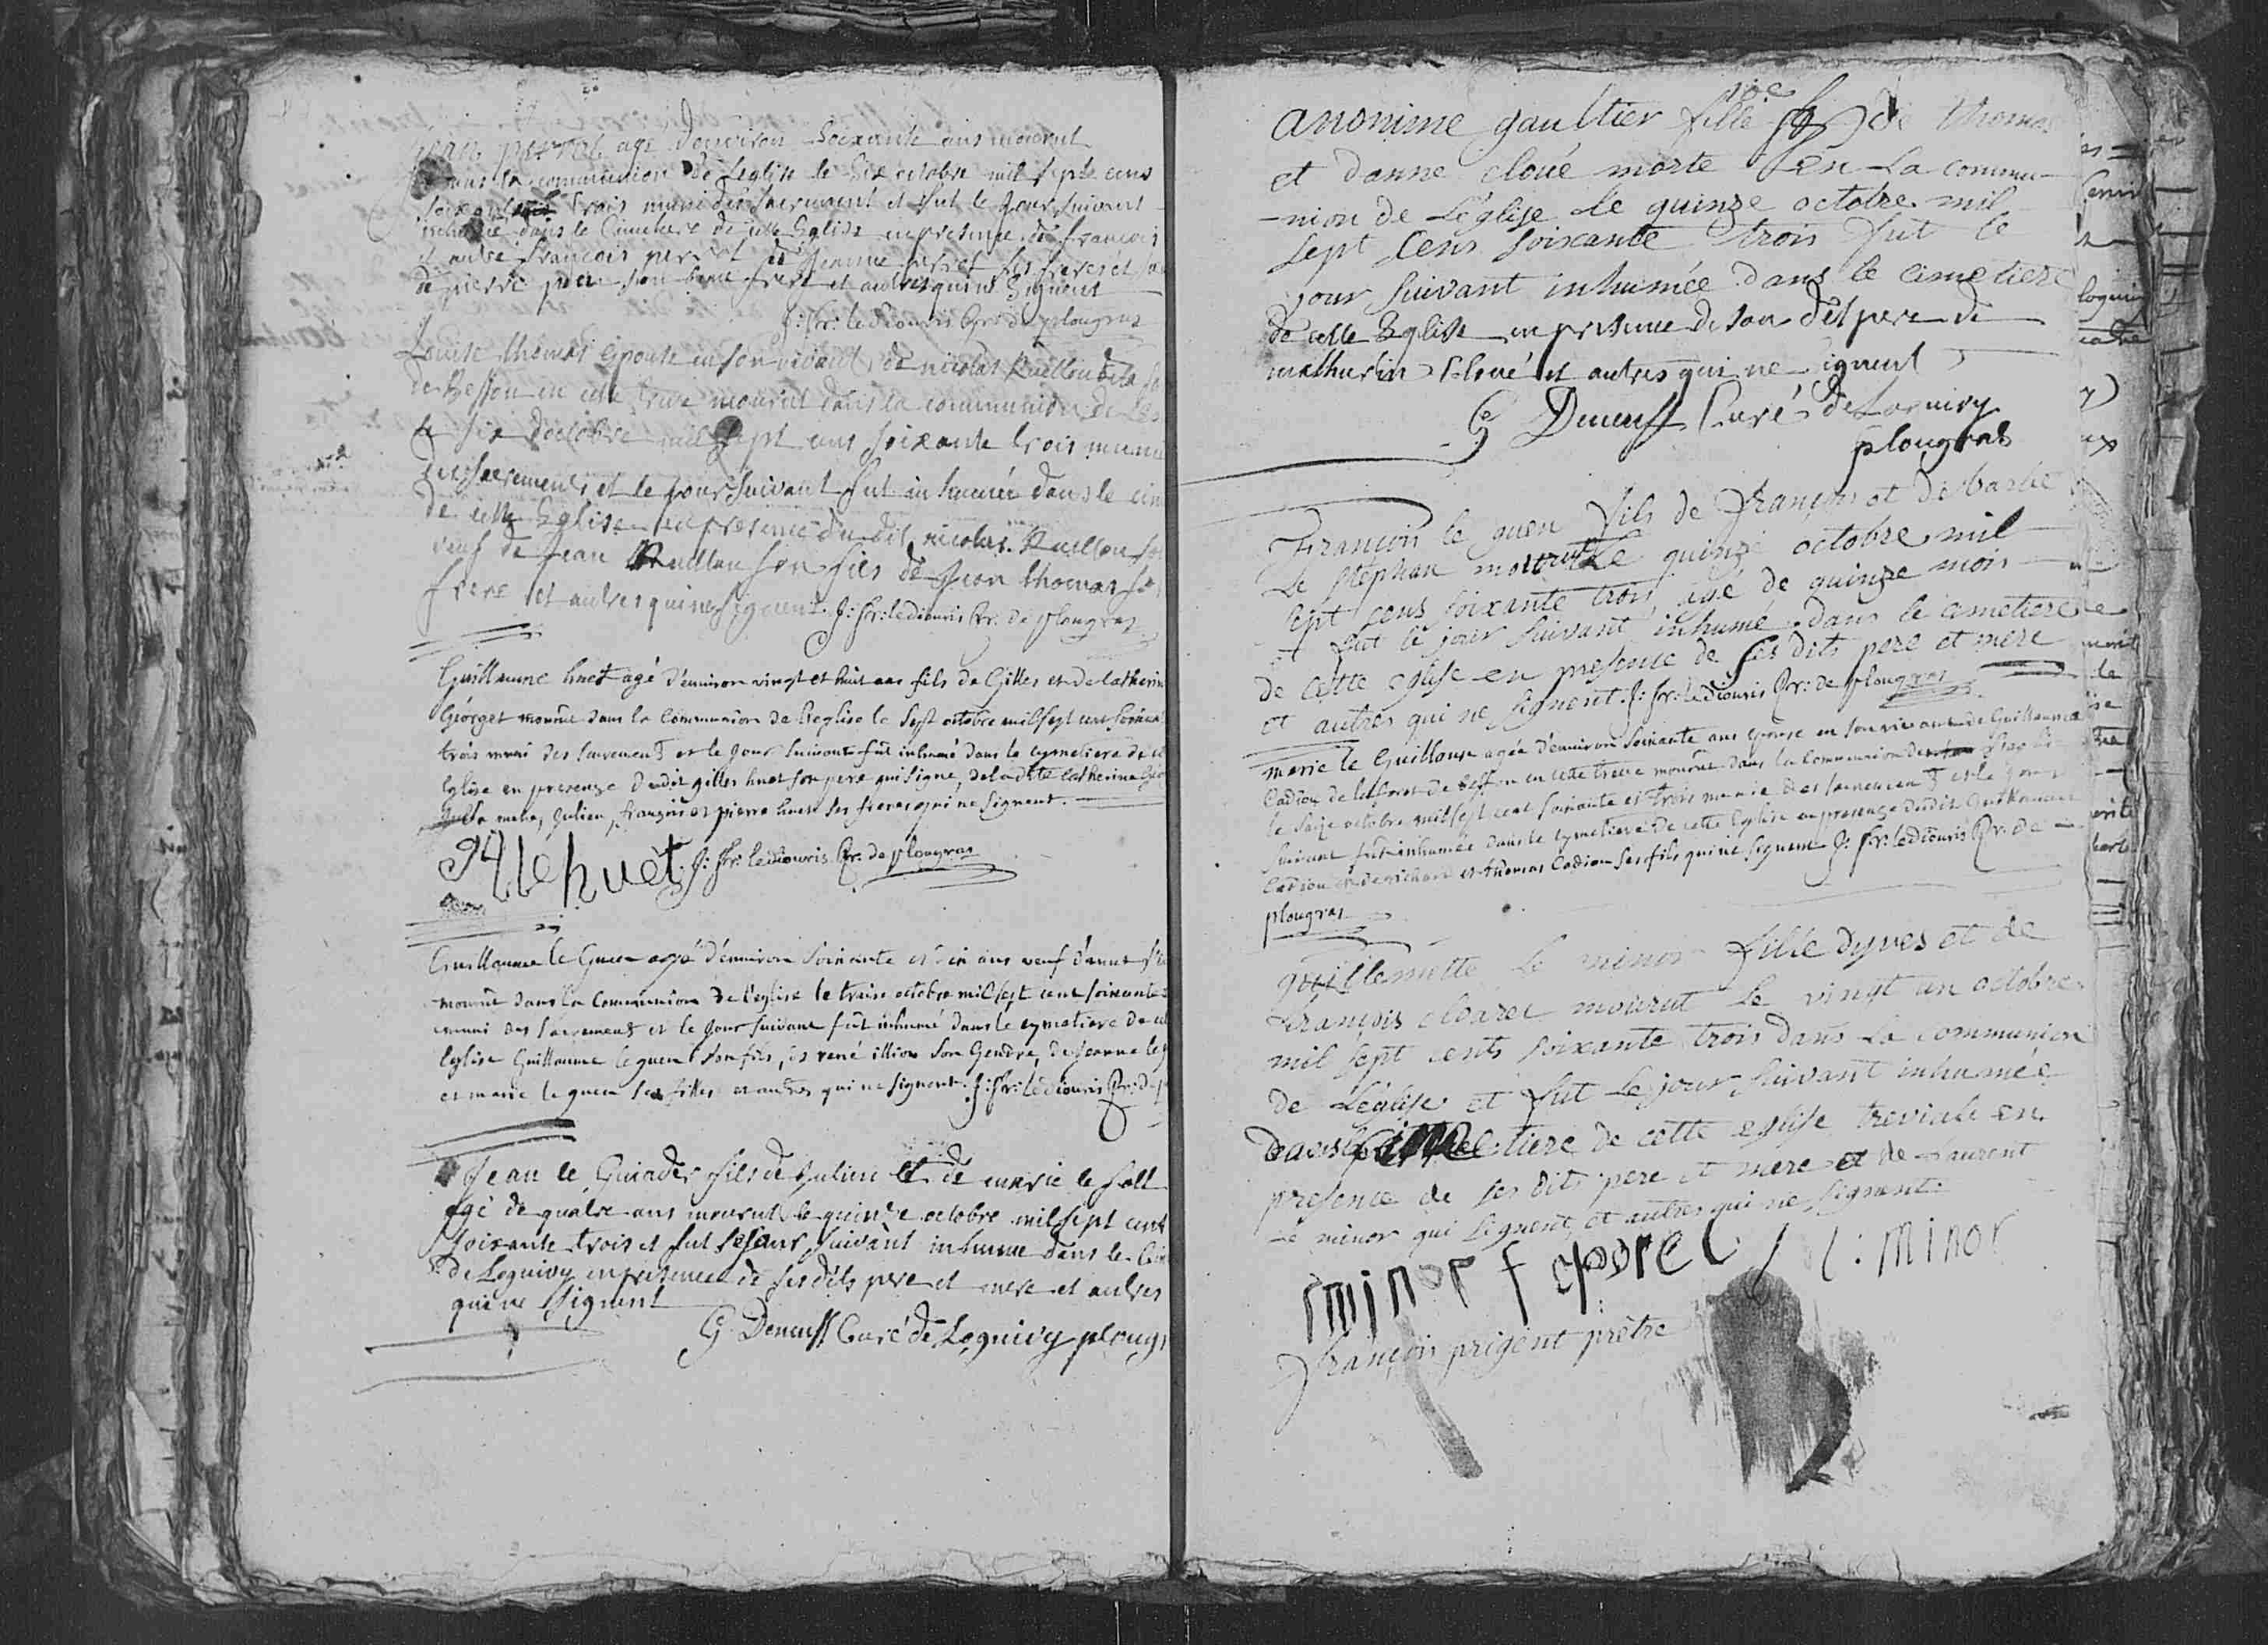 jean perrot agé denviron soixante ans mourut
dans la communion de Leglise le Six octobre mil sept cens
soixante trois muni des sacrement et fut le jour suivant
inhumé dans le Cimetiere de cette Eglise en presence de francois
et autre francois perrot de jeanne perrot ses freres et
de pierre son beau frere et autres qui ne signent
J: fr: lediouris Cr: de plougras
Louise thomas epouse en son vivant de nicolas Ruellou de la
de Beffou en cette treve mourut dans la communion de Les
le six d'octobre mil sept cens soixante trois munie
des sacrements et le jour suivant fut inhumée dans le cim
de cette Eglise en presence du dit nicolas Ruellou son
veuf de jean Ruellou son fils de jean thomas so
frere et autres qui ne signent. J: fr: lediouris Cr: de plougras
Guillaume huet agé d'environ vingt et huit ans fils de Gilles et de Catherin
Géorget mourut dans la Communion de l'eglise le Sept octobre mil sept cent soixant
trois muni des sacrements et le jour suivant fut inhumé dans le cymetiere de c
Eglise en presence dudit gilles huet son pere qui signe, de ladite Catherine Geo
sa mere, julien, françois et pierre huet ses freres qui ne signent.
Gille huet J: fr: lediouris Cr: de plougras
Guillaume le Guen agé d'environ soixante et dix ans veuf d'anne
mourut dans la Communion de l'eglise le treise octobre mil sept cent soixante
muni des sacrements et le jour suivant fut inhumé dans le cymetiere de ce
Eglise Guillaume le guen son fils, de rené illiou son Gendre, de jeanne le g
et marie le guen ses filles et autres qui ne signent. J: fr: lediouris Cr: de p
Jean le Guiader fils de julien et de marie le fall
agé de quatre ans mourut le quinze octobre mil sept cent
soixante trois et fut le jour suivant inhumé dans le Cim
de Loguivy en presence de ses dits pere et mere et autres
qui ne signent
G: Deneuff Curé de Loguivy plougr
anonime gaultier fille de thomas
et danne cloué morte en La commu-
-nion de L'église le quinze octobre mil
sept cens soixante trois fut le
jour suivant inhumée dans le cimetiere
de cette Eglise en presence de son dit pere de
mathurin cloué et autres qui ne signent
G Deneuff Curé de Loguivy
plougras
François le guen fils de françois et de barbe
Le Stephan mourut Le quinze octobre mil
sept cens soixante trois agé de quinze mois
et fut le jour suivant inhumé dans le cimetiere
de cette eglise en presence de ses dits pere et mere
et autres qui ne signent. J: fr: lediouris Cr: de plougras
marie le Guillouse agée d'environ soixante ans epouse en son vivant de Guillaume
Cadiou de la foret de Beffou en cette treve mourut dans la Communion de
le seize octobre mil sept cent soixante et trois munie des sacrements et le jour
suivant fut inhumée dans le cymetiere de cette Eglise en presence dudit Guillaume
Cadiou et thomas Cadiou ses fils qui ne signent J: fr: lediouris Cr: de
plougras
guillemette Le minor fille dyves et de
françois mourut Le vingt un octobre
mil sept cents soixante trois dans La communion
de L'église et fut Le jour suivant inhumée
dans le cimetiere de cette eglise treviale en
presence de ses dits pere et mere et de Laurent
Le minor qui signent et autres qui ne signent
minor l: minor
françois prigent prêtre